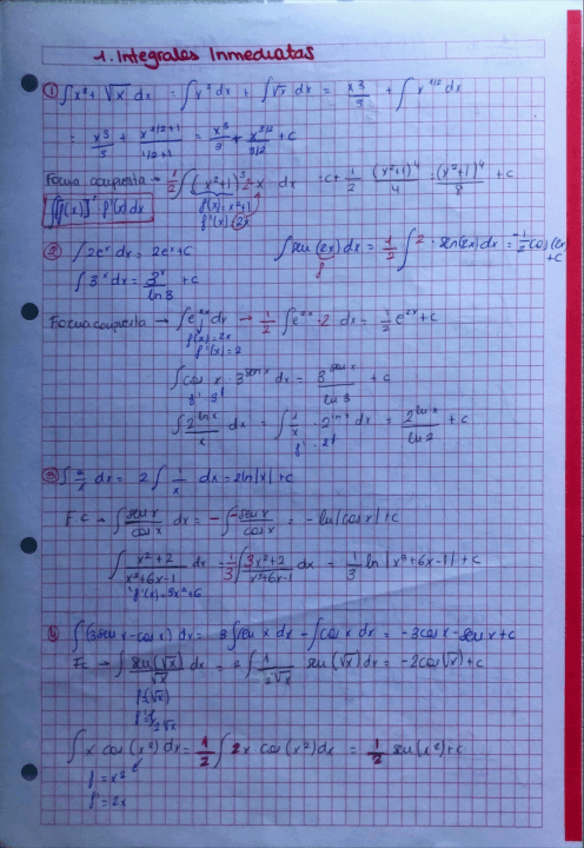 1. Integrales Inmediatas
① ∫x²+ √x dx = ∫x² dx + ∫√x dx = x3/3 + ∫ x^1/2 dx
= x3/3 + x^(1/2+1)/(1/2+1) = x³/3 + x^3/2/3/2 + c
Forma compuesta → 1/2 ∫(x²+1)³ 2·x dx = c+ 1/2 (x²+1)⁴/4 = (x²+1)⁴/8 + c
f(x)=x²+1
f'(x) 2x
② ∫2eˣ dx = 2eˣ+c
∫sen(2x) dx = 1/2 ∫2 · sen(2x) dx = -1/2 cos(2x) +c
∫3ˣ dx = 3ˣ/ln 3 + c
Forma compuesta → ∫e^2x dx → 1/2 ∫e^2x · 2 dx = 1/2 e^2x + c
f(x) = 2x
f'(x) = 2
∫cos x · 3^sen x dx = 3^sen x/ln 3 + c
∫2^ln x/x dx = ∫1/x · 2^ln x dx = 2^ln x/ln 2 + c
③ ∫2/x dx = 2∫1/x dx = 2ln|x|+c
F.C → ∫sen x/cos x dx = -∫-sen x/cos x = -ln|cos x|+c
∫x²+2/x³+6x-1 dx = 1/3 ∫3x²+2/x³+6x-1 dx = 1/3 ln|x³+6x-1|+c
f'(x) = 3x²+6
④ ∫(3sen x-cos x) dx = 3∫sen x dx - ∫cos x dx = -3cos x - sen x+c
Fc → ∫sen(√x)/√x dx = 2∫1/2√x sen(√x) dx = -2cos(√x)+c
∫x cos(x²) dx = 1/2 ∫2x · cos(x²) dx = 1/2 sen(x²)+c
f = x²
f' = 2x